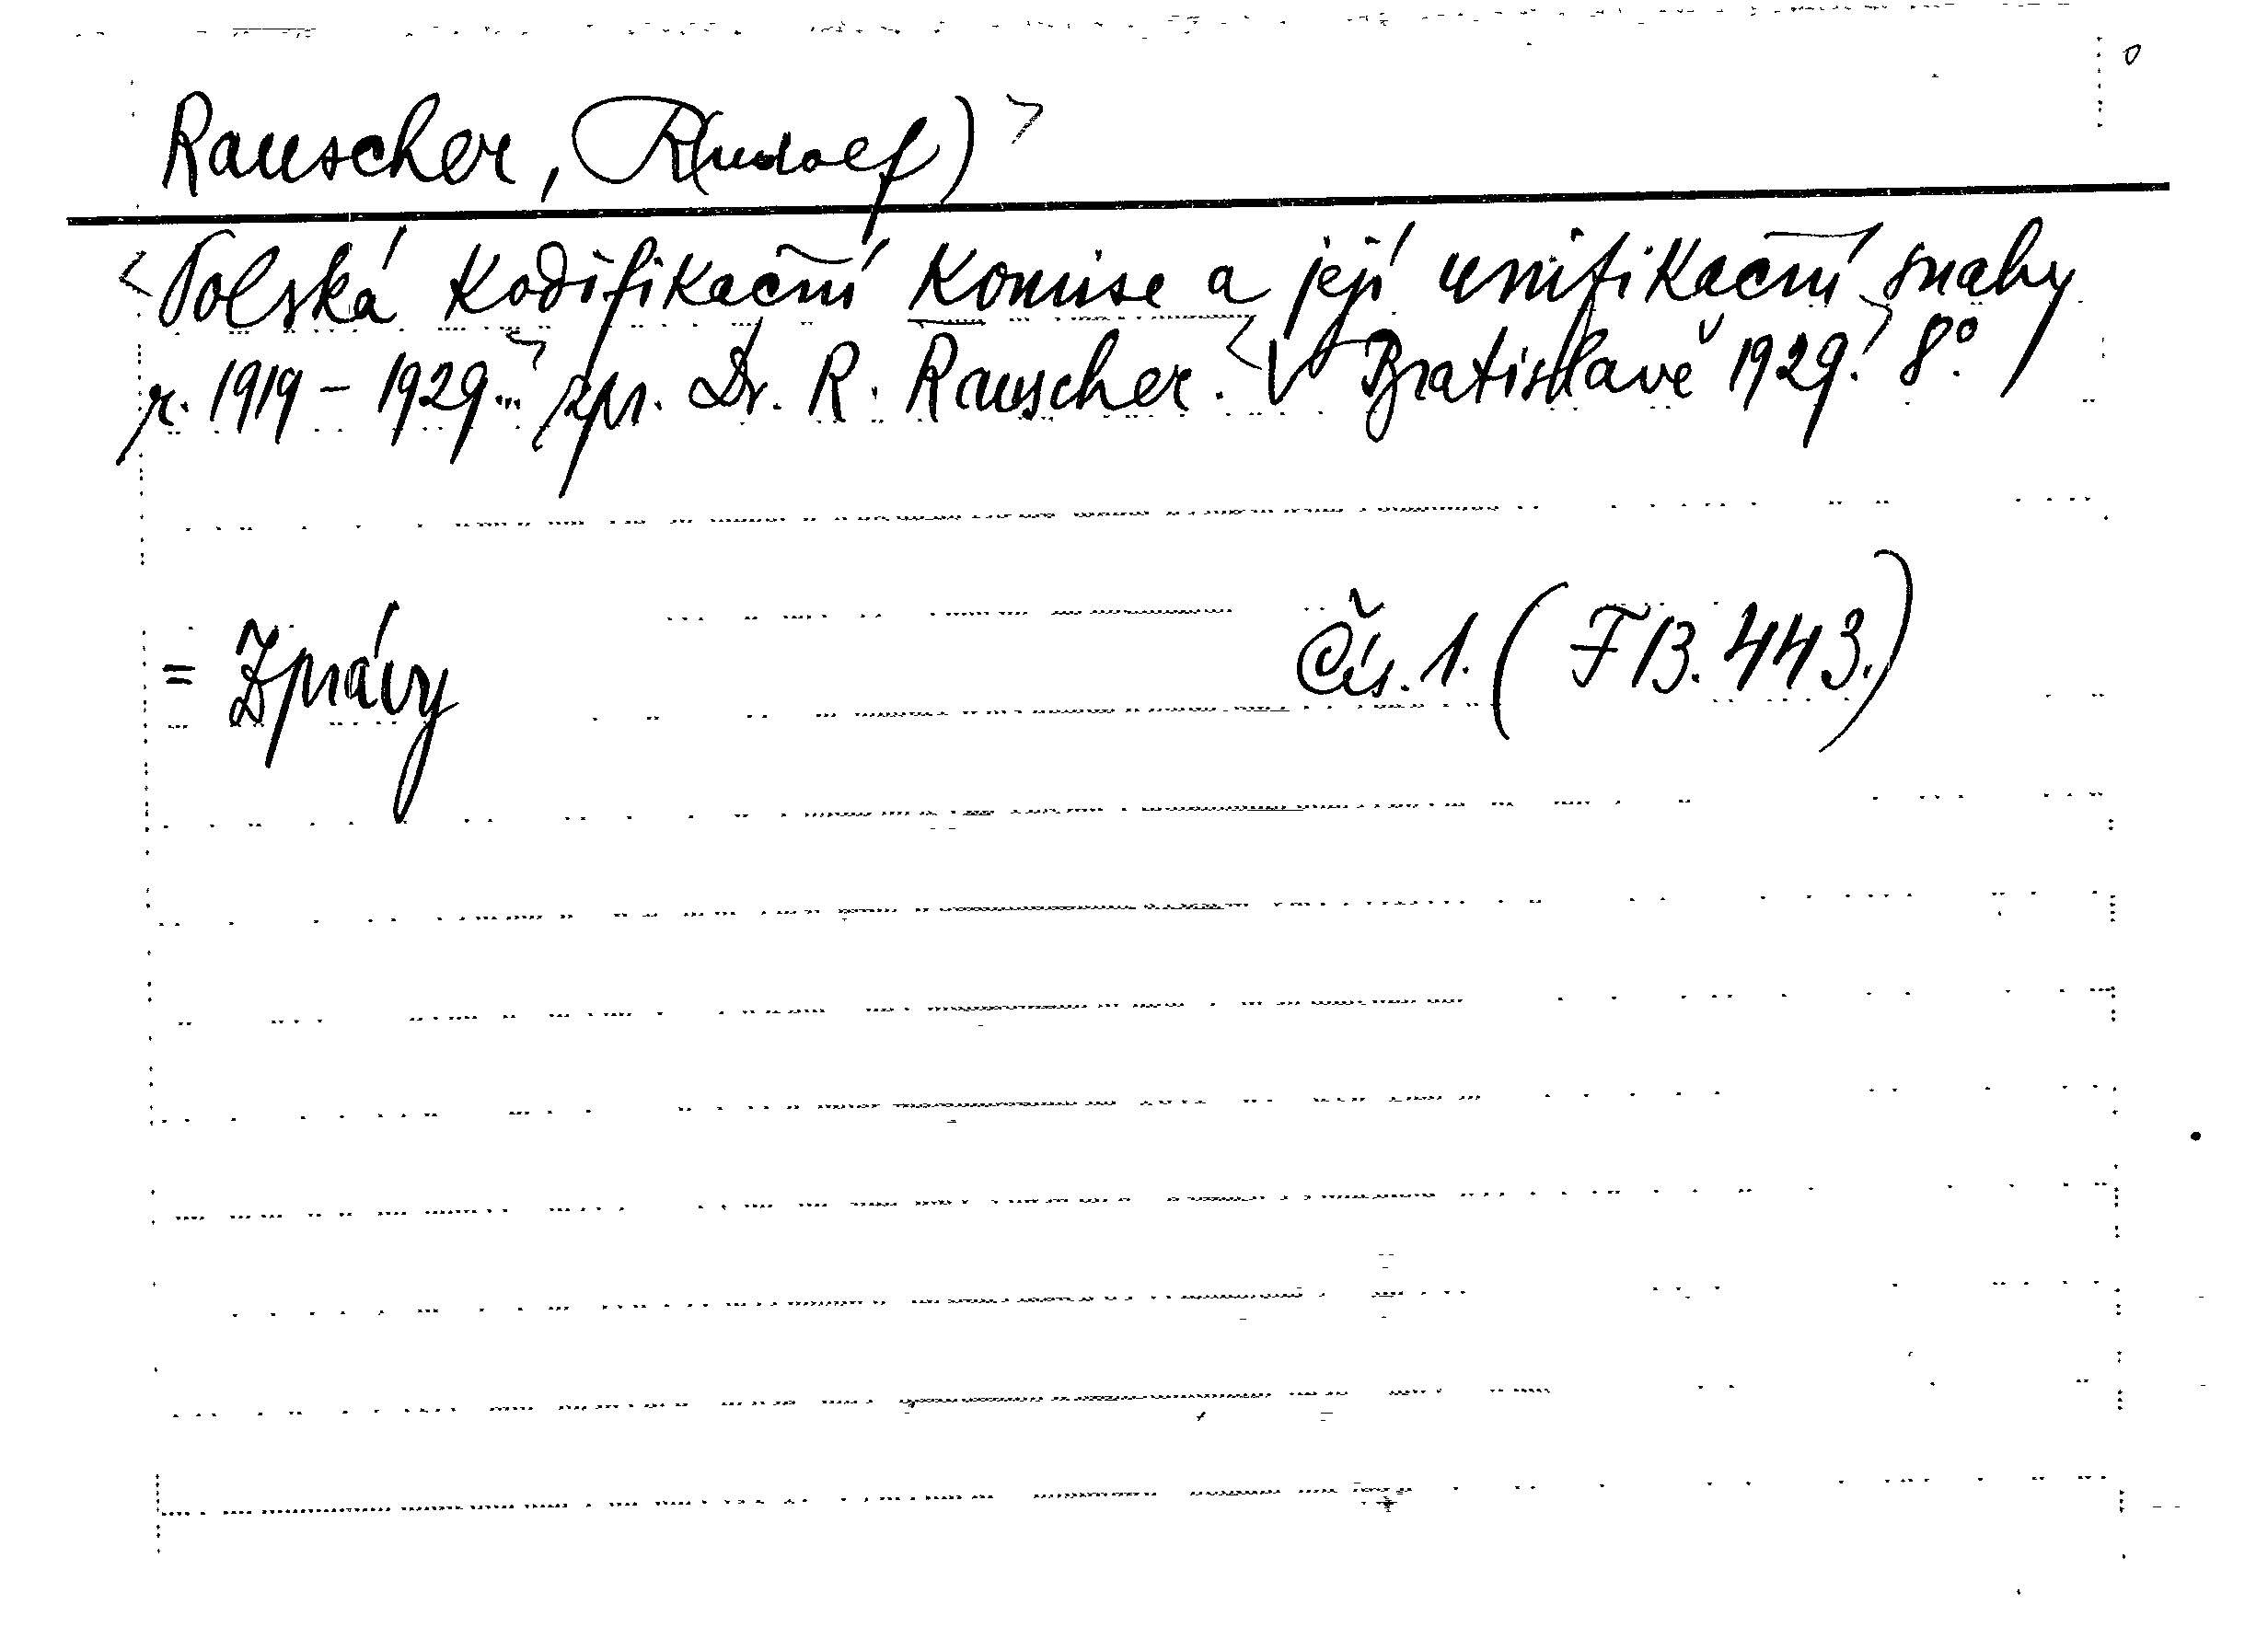 Rauscher, R(udolf)>
<Polská kodifikační komise a její unifikační snahy
r. 1919 – 1929...> zpr. Dr. R. Rauscher. <V Bratislavě 1929.> 8°.
= Zprávy Čís. 1. (FB. 443.)